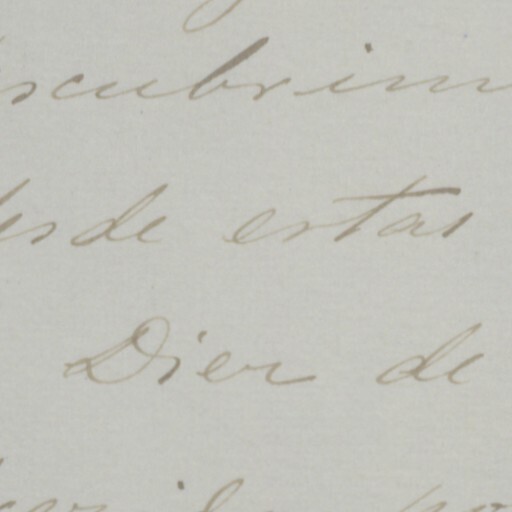 scubrim
desde estas
Dier de